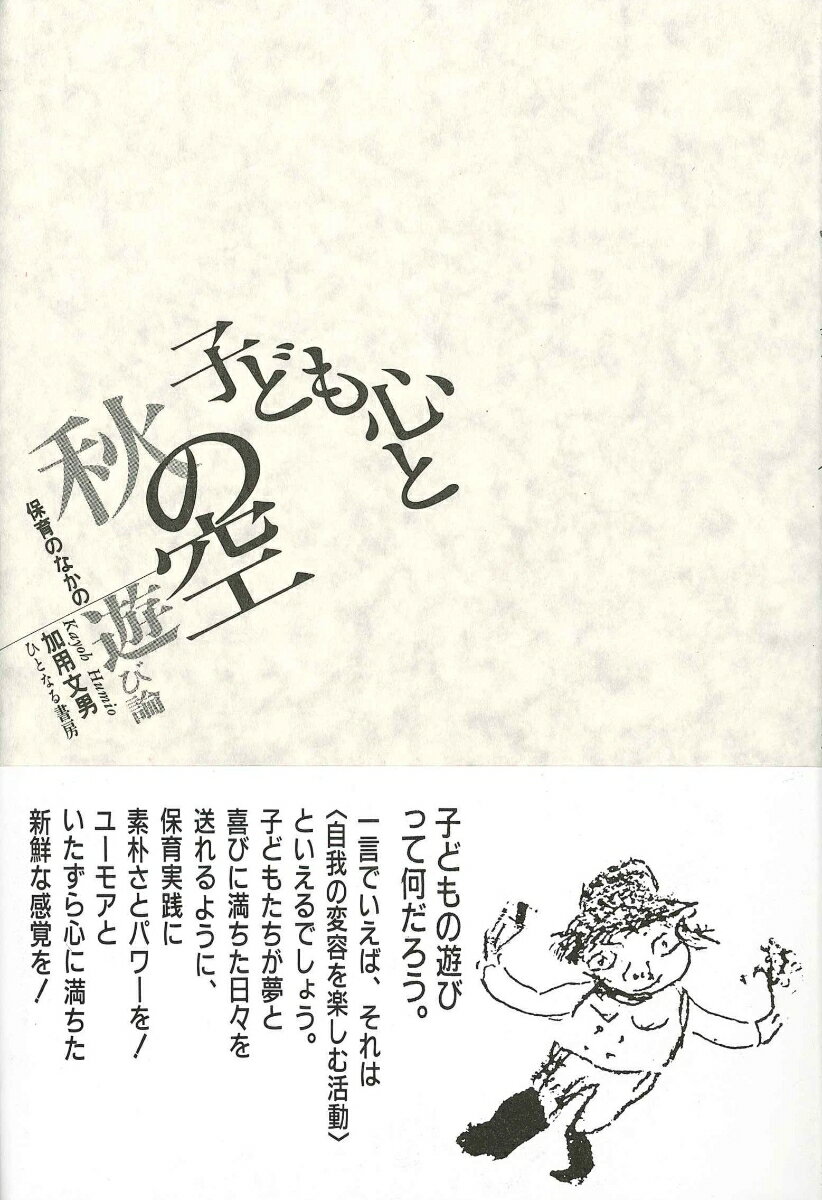 子ども心と
秋の空
保育のなかの
遊び論
Kayoh Humio
加用文男
ひとなる書房
子どもの遊び
って何だろう。
一言でいえば、それは
〈自我の変容を楽しむ活動〉
といえるでしょう。
子どもたちが夢と
喜びに満ちた日々を
送れるように、
保育実践に
素朴さとパワーを!
ユーモアと
いたずら心に満ちた
新鮮な感覚を!